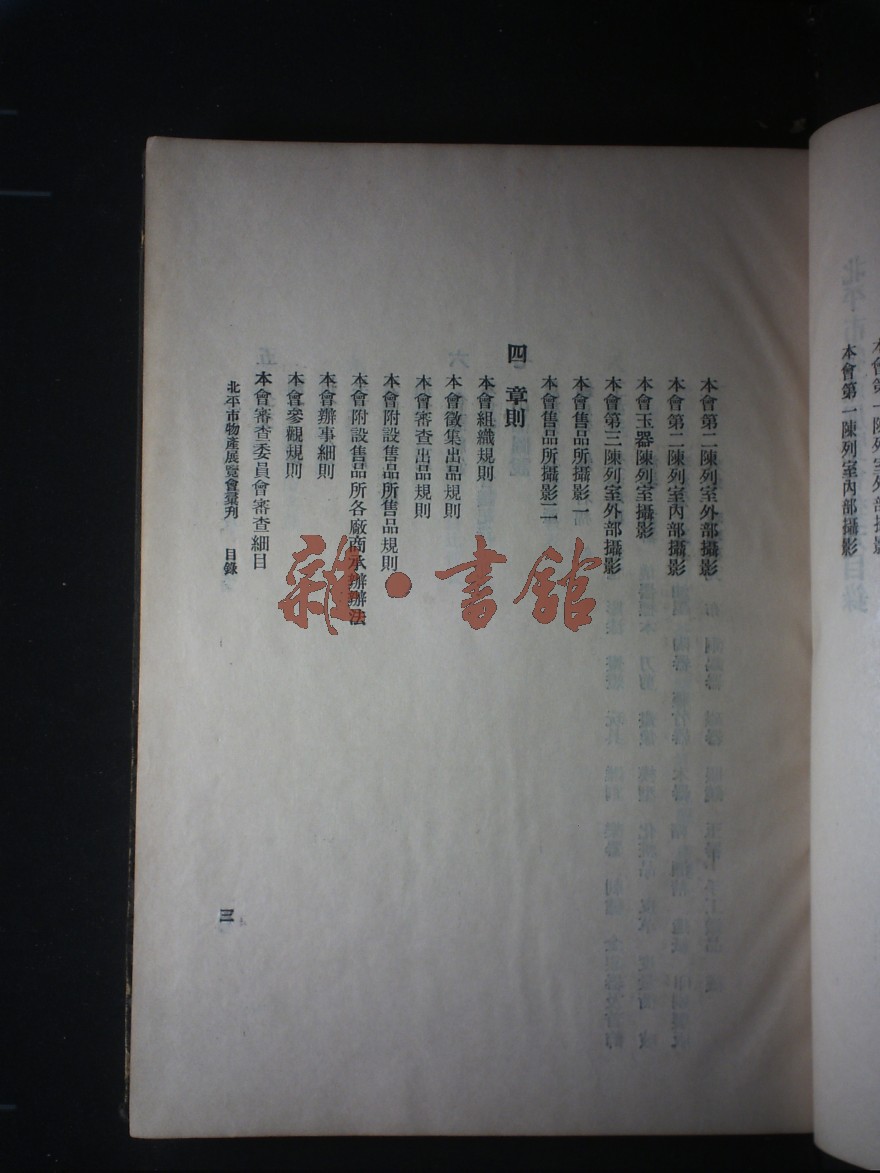 本會第一陳列室內部攝影
本會第二陳列室外部攝影
本會第二陳列室內部攝影
本會玉器陳列室攝影
本會第三陳列室外部攝影
本會售品所攝影一
本會售品所攝影二
四 章則
本會組織規則
本會徵集出品規則
本會審查出品規則
本會附設售品所售品規則
本會附設售品所各廠商承辦辦法
本會辦事細則
本會參觀規則
本會審查委員會審查細目
北平市物產展覽會彙刊 目錄
三
雜·書館